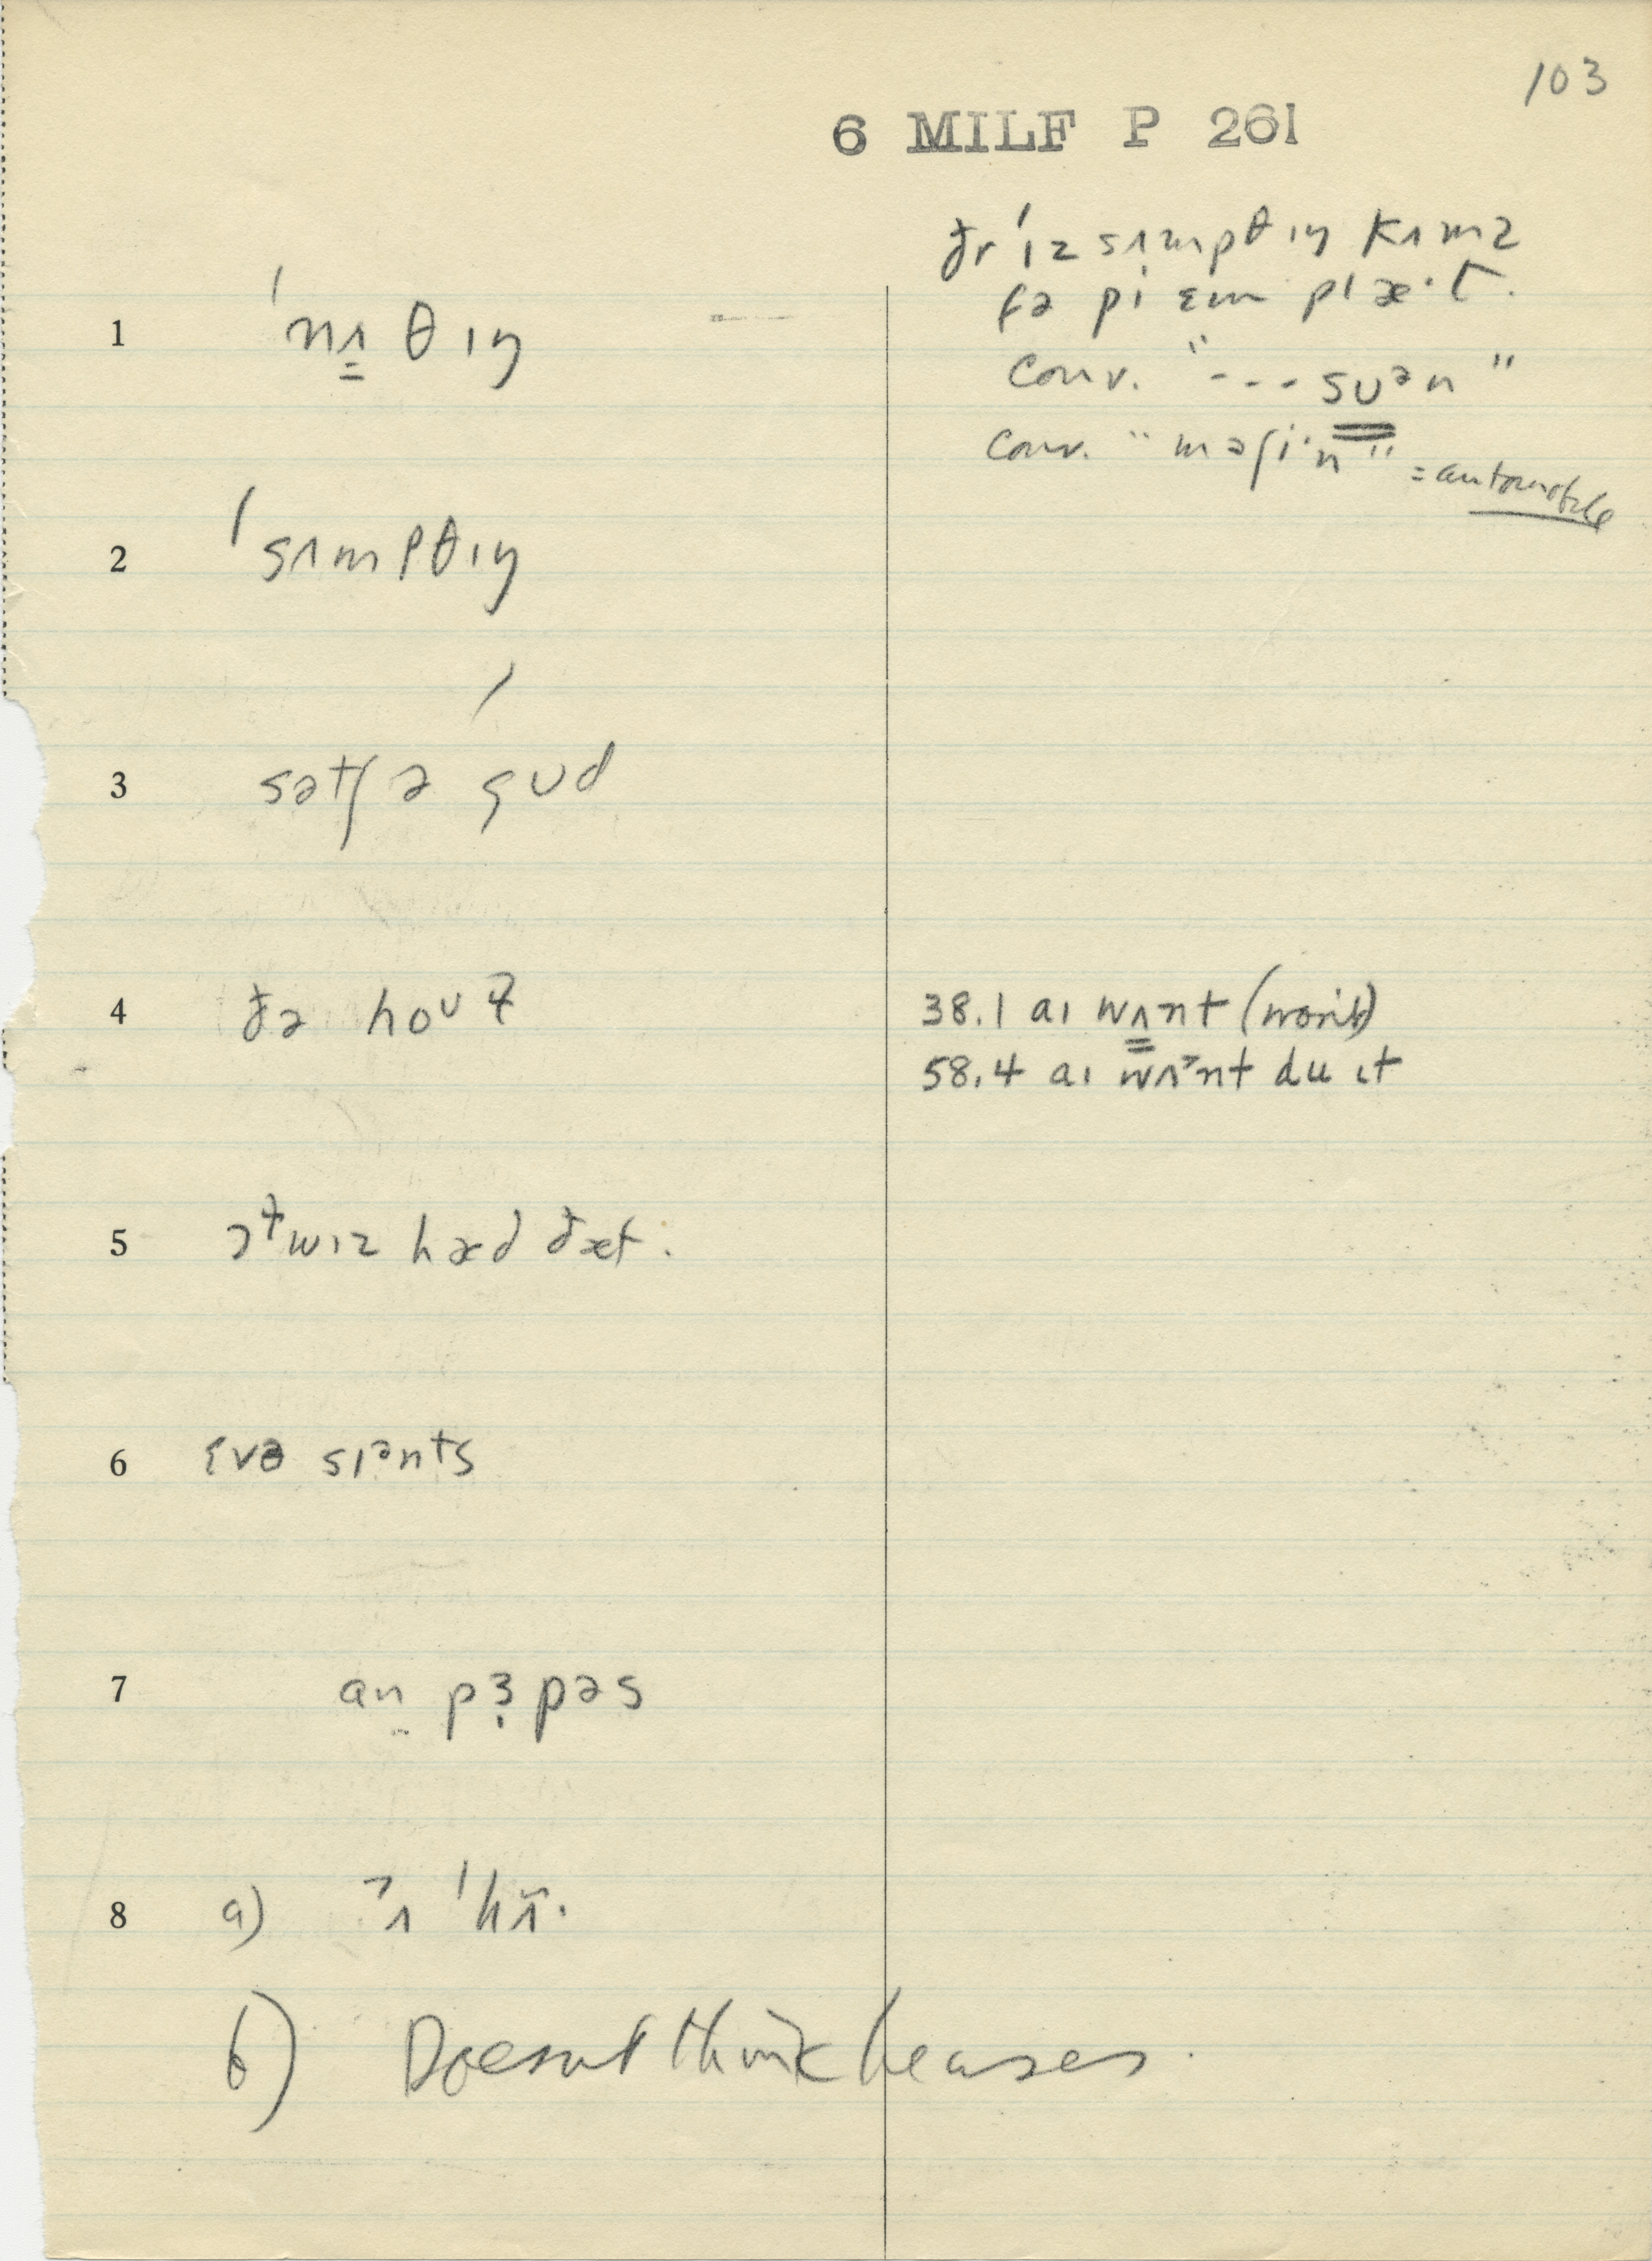 103
6 MILF P 261
ðr ˈɪz sʌmpθɪŋ kʌmz
fə pi ɛm plæ·t.
conv. "--- sʊᵊn"
conv. "məʃi·n" = automobile
1 ˈnʌθɪŋ
2 ˈsʌmpθɪŋ
3 sətʃ ə gʊd
4 ðə hoʊɫ
38.1 aɪ wʌnt (won't)
58.4 aɪ wʌᵊnt du ɪt
5 ə ɫwɪz hæd ðæt.
6 ɛvə sɪᵊnts
7 an pɜpəs
8 a) ˀʌ ˈhʌ̃·
b) Doesn't think he uses.